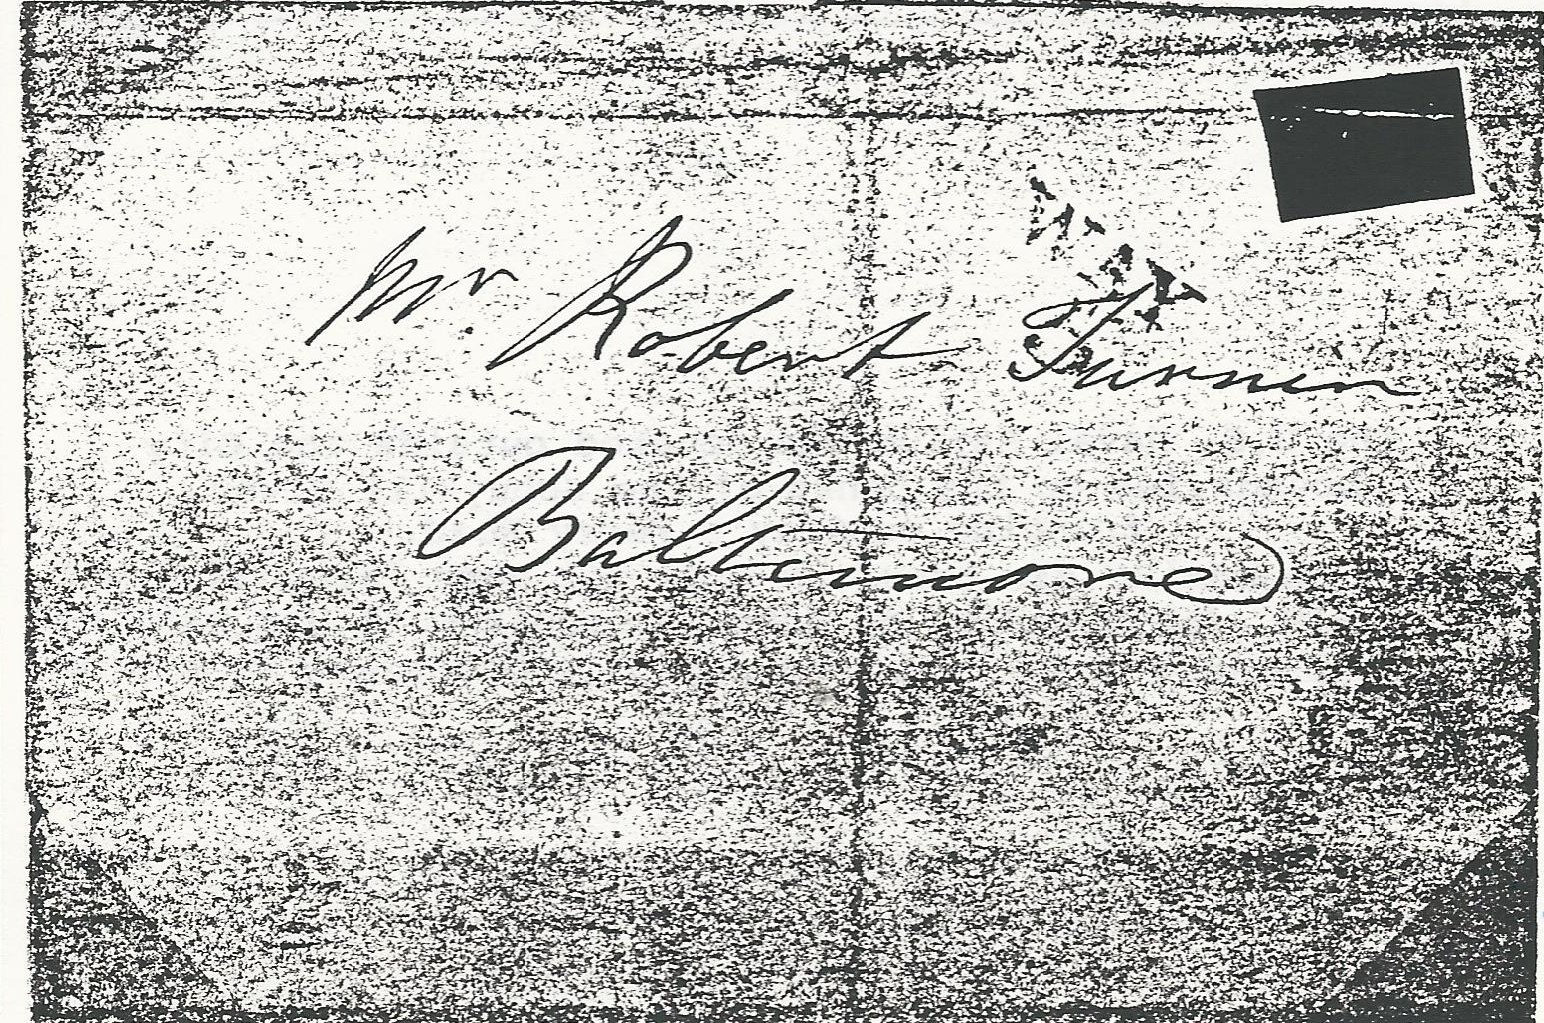 Mr Robert Turner
Baltimore